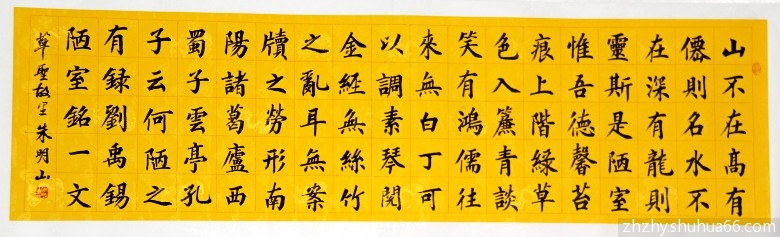 山不在髙有
僊則名水不
在深有龍則
靈斯是陋室
惟吾德馨苔
痕上階緑草
色入簾青談
笑有鴻儒往
來無白丁可
以調素琴閱
金經無絲竹
之亂耳無案
牘之勞形南
陽諸葛廬西
蜀子雲亭孔
子云何陋之
有録劉禹錫
陋室銘一文
草聖故里朱明山
zhzhy.shuhua66.com